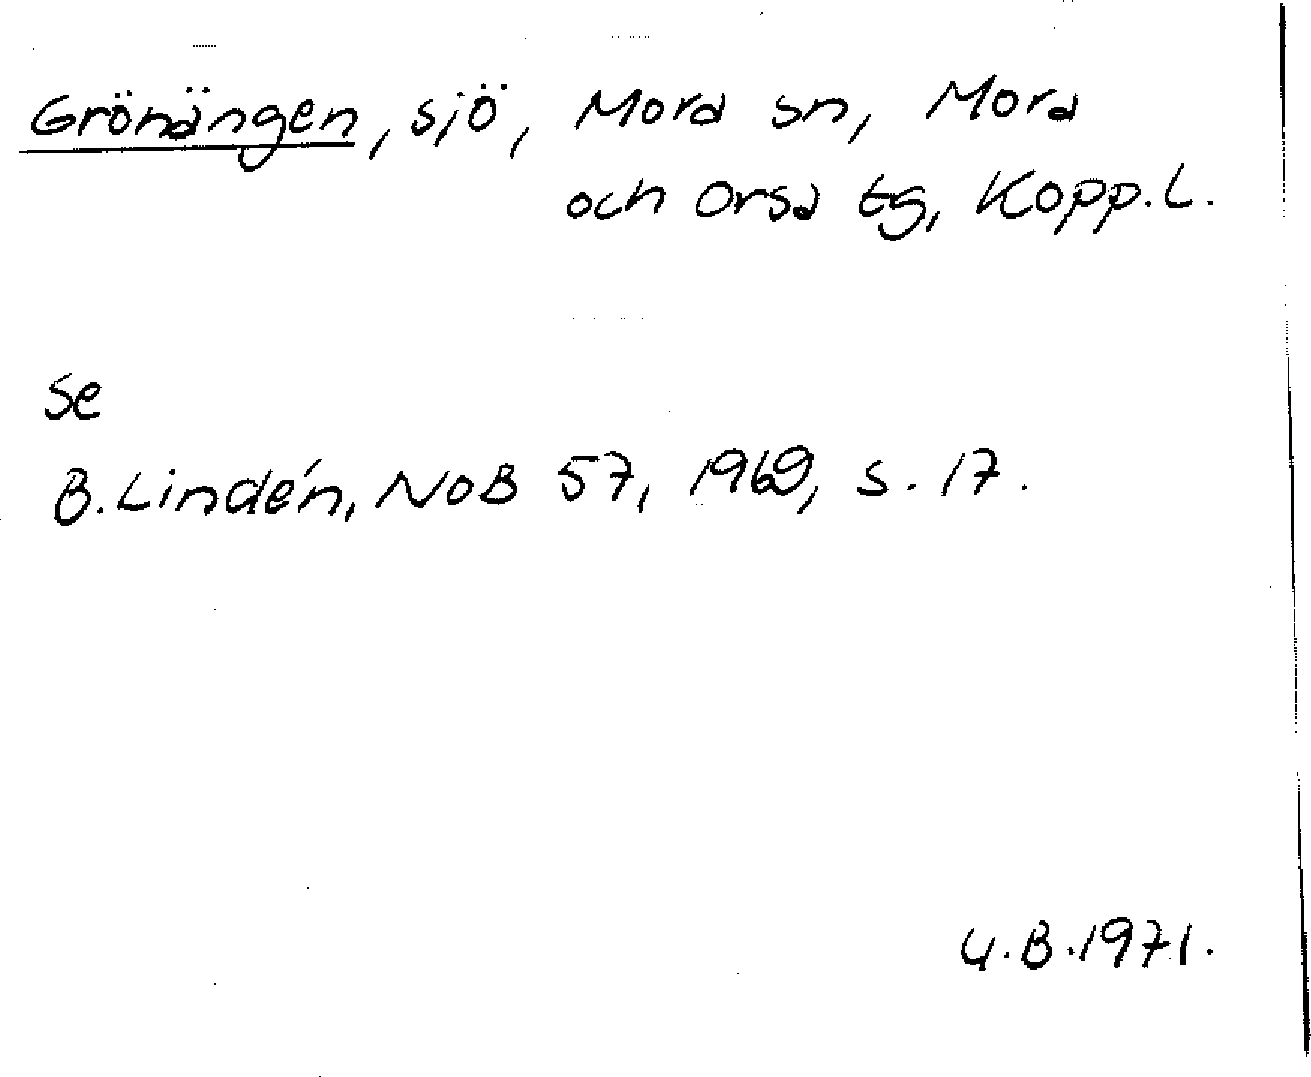 Grönängen, sjö, Mora sn, Mora
och Orsa tg, Kopp.L.
Se
B. Lindén, NoB 57, 1969, s. 17.
U.B.1971.